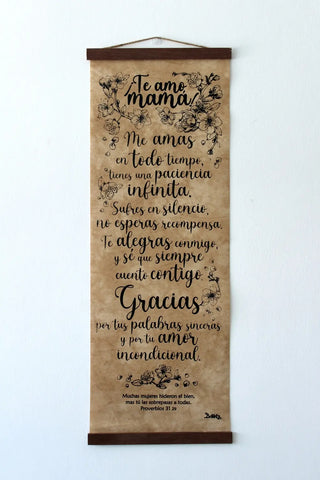 Te amo
mamá
Me amas
en todo tiempo,
tienes una paciencia
infinita.
Sufres en silencio,
no esperas recompensa.
Te alegras conmigo,
y sé que siempre
cuento contigo.
Gracias
por tus palabras sinceras
y por tu amor
incondicional.
Muchas mujeres hicieron el bien,
mas tú las sobrepasas a todas.
Proverbios 31:29